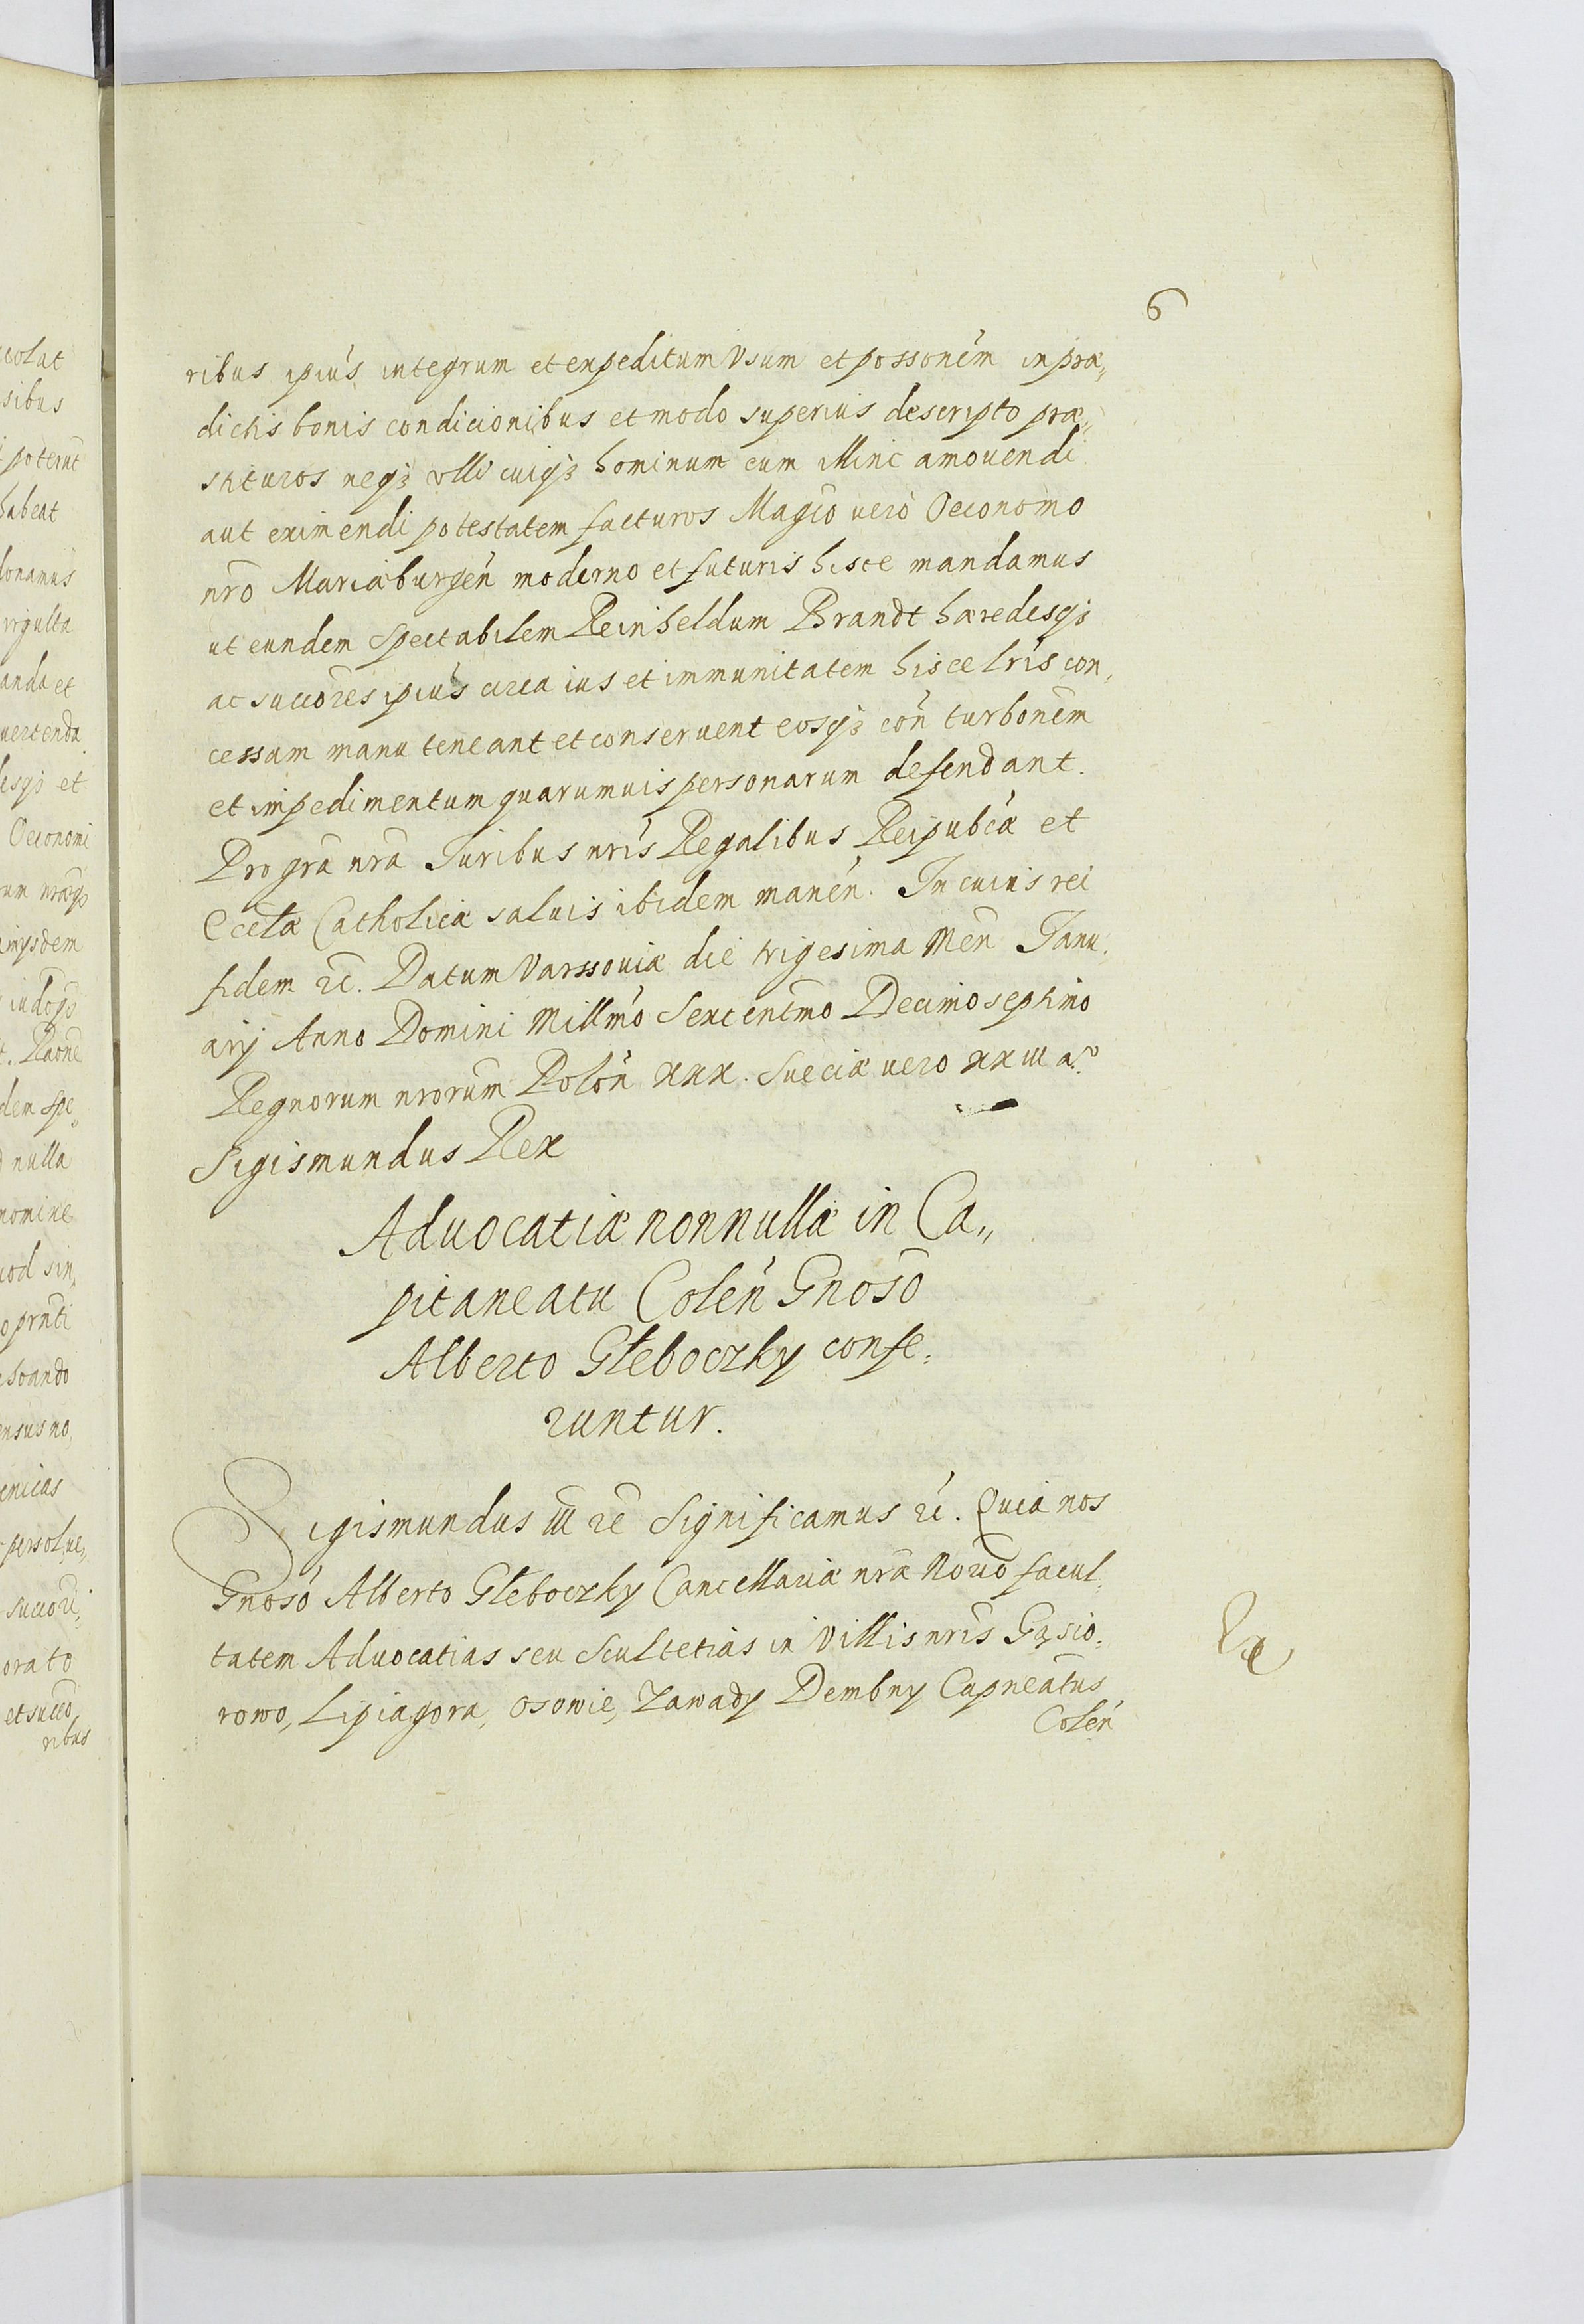 6
ribus ipius integrum et expeditum Vsum et possonem in præ„
dictis bonis condicionibus et modo superius descripto præ„
stituros neqʒ vlli cuiqʒ hominum eum illinc amouendi
aut eximendi potestatem facturos Magco vero Oeconomo
nro Mariæburgen moderno et futuris hisce mandamus
ut eundem Spectabilem Reinheldum Brandt hæredesqʒ
ac succores ipius circa ius et immunitatem hisce lris con„
cessam manu teneant et conseruent eosqʒ con turbonem
et impedimentum quarumuis personarum defendant.
Pro gra nra Iuribus nris Regalibus Reipubcæ et
Eccliæ Catholicæ saluis ibidem manen. In cuius rei
fidem ꝛc. Datum Varssouiæ die trigesima Men Ianu„
arij Anno Domini Millmo Sexcentmo Decimo septimo
Regnorum nrorum Polon XXX. Sueciæ vero XXIII a.º
Sigismundus Rex
Aduocatiæ nonnullæ in Ca„
pitaneatu Colen Gnoso
Alberto Głeboczky confe„
runtur.
Sigismundus III ꝛc Significamus ꝛc. Quia nos
Gnoso Alberto Głeboczky Cancellariæ nræ Norio facul„
tatem Aduocatias seu Scultetias in Villis nris Gąsio„
rowo, Lipiagora, Osowie, Zawady Dembny Capneatus
Colen
colat
sibus
poterut
habeat
donamus
irgulta
anda et
uertenda
desqʒ et
Oeconomi
den spe„
nulla
nomine
uod sin„
ensus no„
persolue„
orato
et succo
ribus